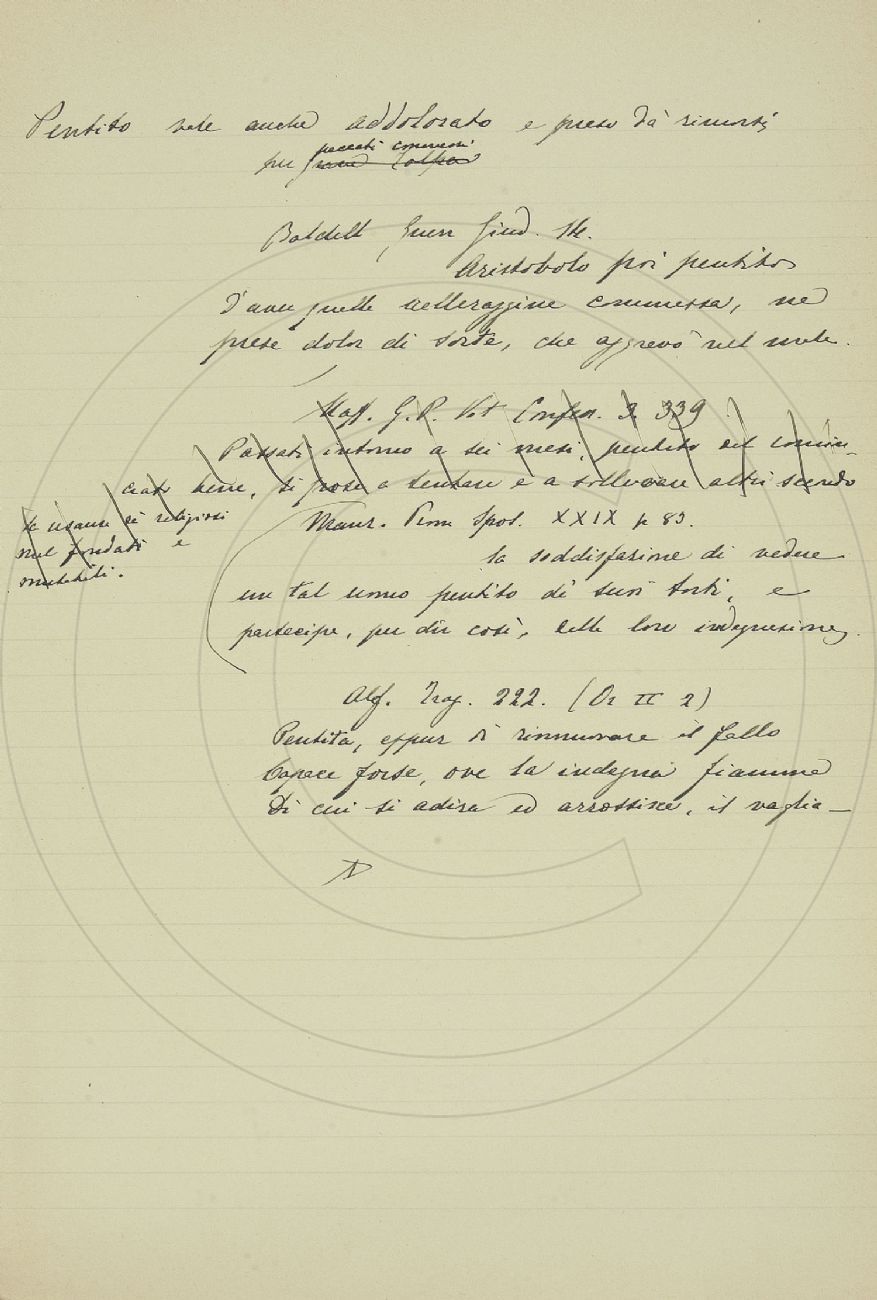 Pentito vale anche addolorato e preso da rimorsi
per peccati commessi
Baldell Guerr Giud. 34.
Aristobolo poi pentito
d'aver quelle scelleraggine commessa, ne
prese dolor di sorte, che aggravò nel male.
Maff. G. P. Vit Confess. 2. 339
Passati intorno a sei mesi, pentito del comin-
ciato bene, si pose a tentare e a sollevare altri secondo
le usanze di religiosi
mal fondati e
mutabili.
Manz. Prom Spos. XXIX p 83.
la soddisfazione di vedere
un tal uomo pentito de' suoi torti, e
partecipe, per dir così, della loro indegnazione.
Alf. Trag. 222. (Or II 2)
Pentita, eppur di rinnovare il fallo
Capace forse, ove la indegna fiamma
Di cui si adira ed arrossisce, il vaglia—